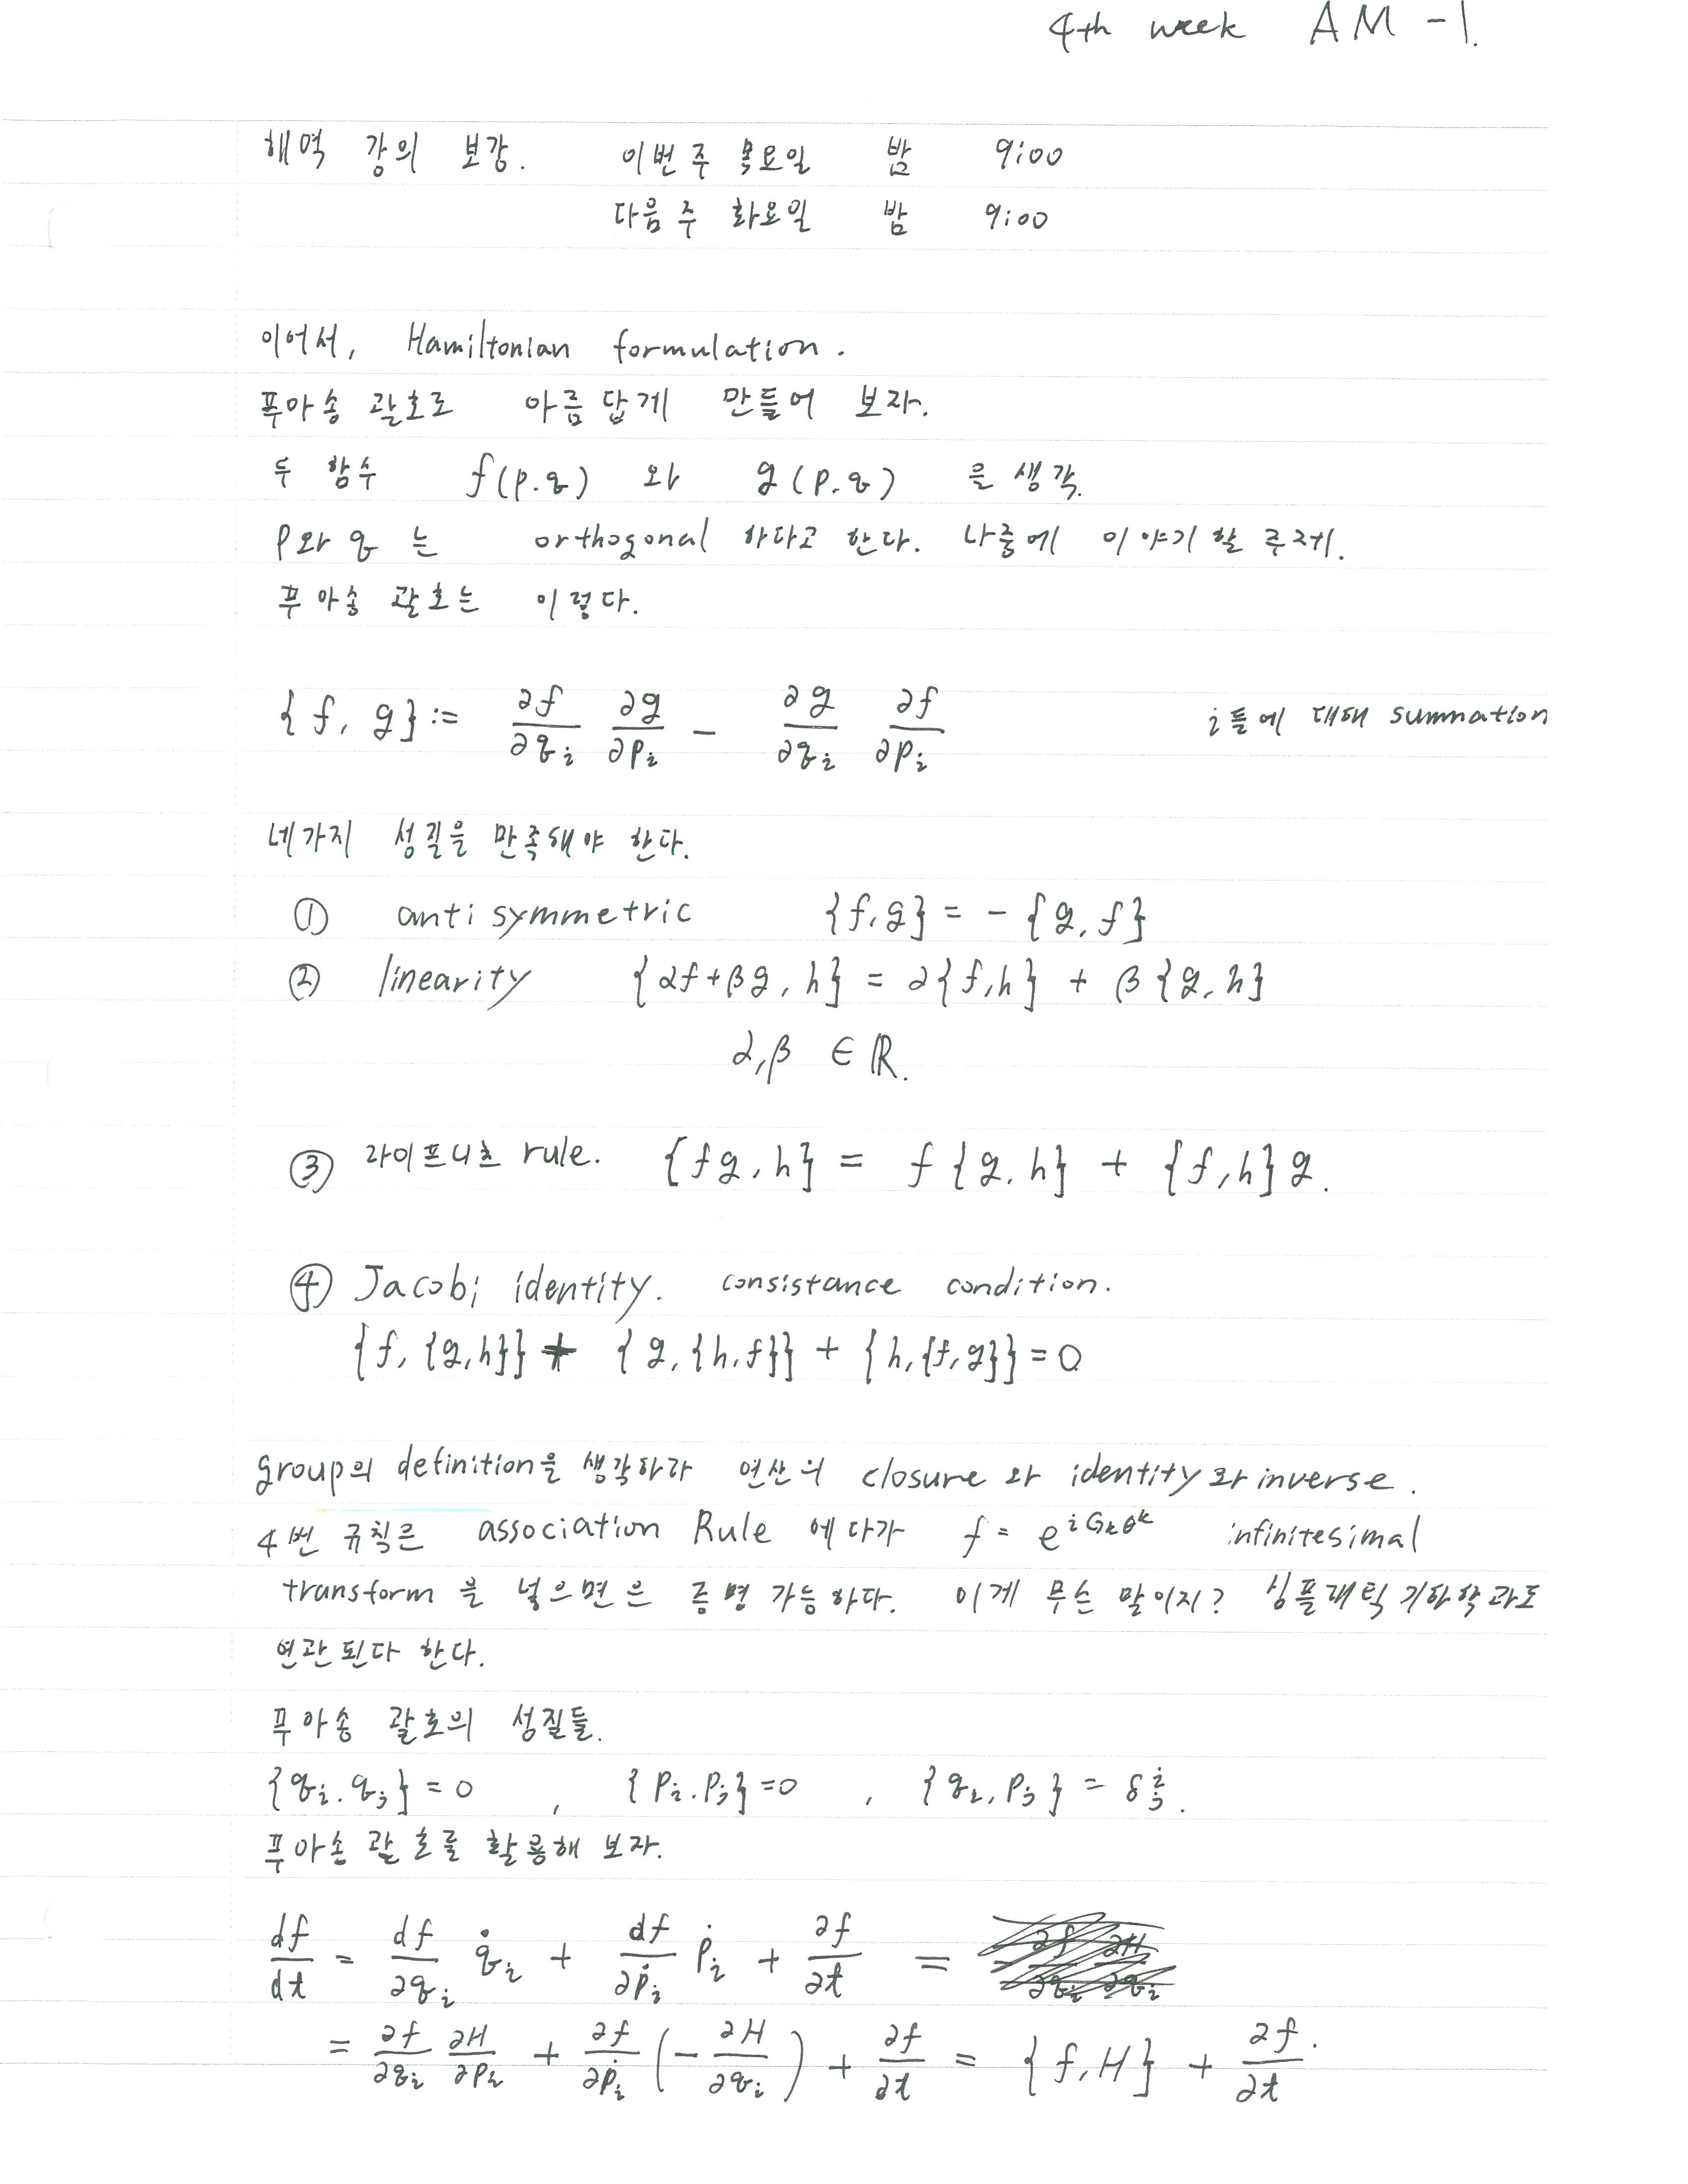 4th week AM -1.
해역 강의 보강. 이번 주 목요일 밤 9:00
다음 주 화요일 밤 9:00
이어서, Hamiltonian formulation.
푸아송 괄호로 아름답게 만들어 보자.
두 함수 f(p.q) 와 g(p.q) 을 생각.
p와 q 는 orthogonal 하다고 한다. 나중에 이야기 할 주제.
푸아송 괄호는 이렇다.
{f, g} := ∂f/∂q_i ∂g/∂p_i - ∂g/∂q_i ∂f/∂p_i i들에 대해 summation
네가지 성질을 만족해야 한다.
① anti symmetric {f,g} = - {g,f}
② linearity {αf+βg, h} = α{f,h} + β{g,h}
α,β ∈ ℝ.
③ 라이프니츠 rule. {fg, h} = f{g,h} + {f,h}g.
④ Jacobi identity. consistance condition.
{f, {g,h}} + {g, {h,f}} + {h, {f,g}} = 0
group의 definition을 생각하라 연산의 closure 와 identity와 inverse.
4번 규칙은 association Rule 에다가 f = e^{iG_kθ^k} infinitesimal
transform 을 넣으면은 증명 가능하다. 이게 무슨 말이지? 심플래틱 기하학과도
연관된다 한다.
푸아송 괄호의 성질들.
{q_i, q_j} = 0 , {p_i, p_j} = 0 , {q_i, p_j} = δ^i_j.
푸아손 괄호를 활용해 보자.
df/dt = df/∂q_i q̇_i + df/∂p_i ṗ_i + ∂f/∂t =
= ∂f/∂q_i ∂H/∂p_i + ∂f/∂p_i (- ∂H/∂q_i) + ∂f/∂t = {f,H} + ∂f/∂t.